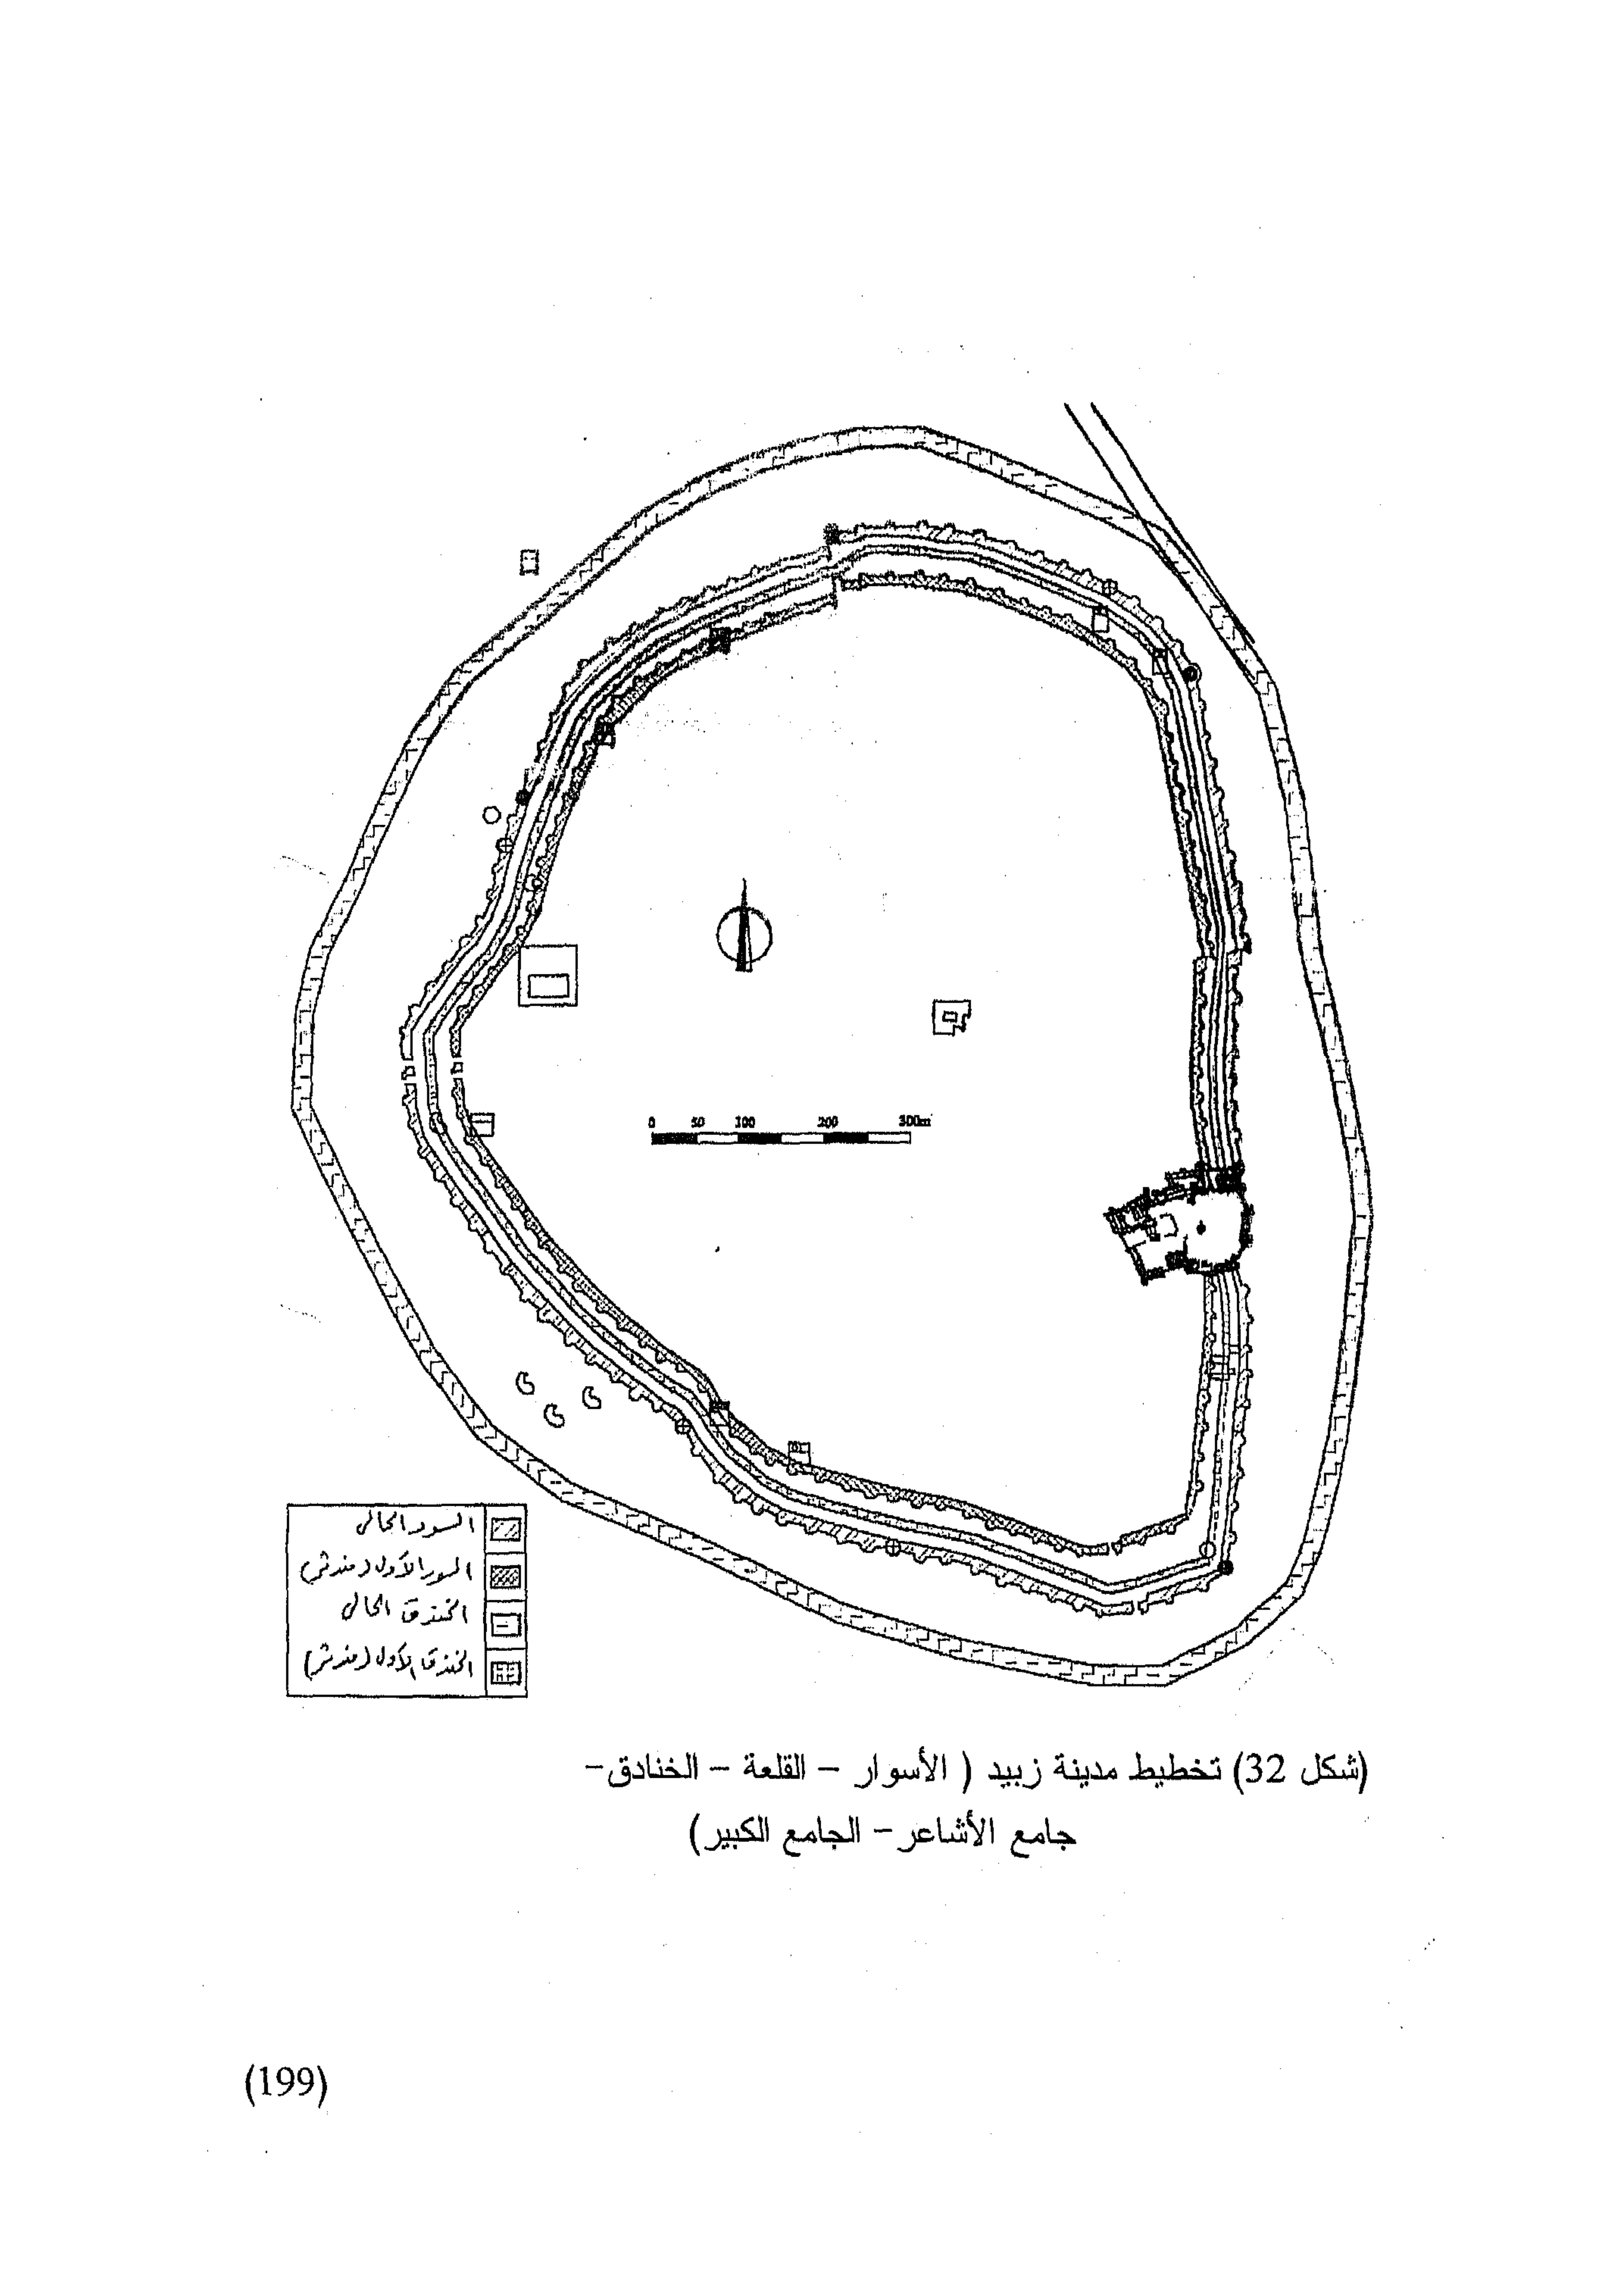 0 50 100 200 300m
السور الحالي
السور الأول (مندثر)
الخندق الحالي
الخندق الأول (مندثر)
(شكل 32) تخطيط مدينة زبيد ( الأسوار – القلعة – الخنادق–
جامع الأشاعر– الجامع الكبير)
(199)